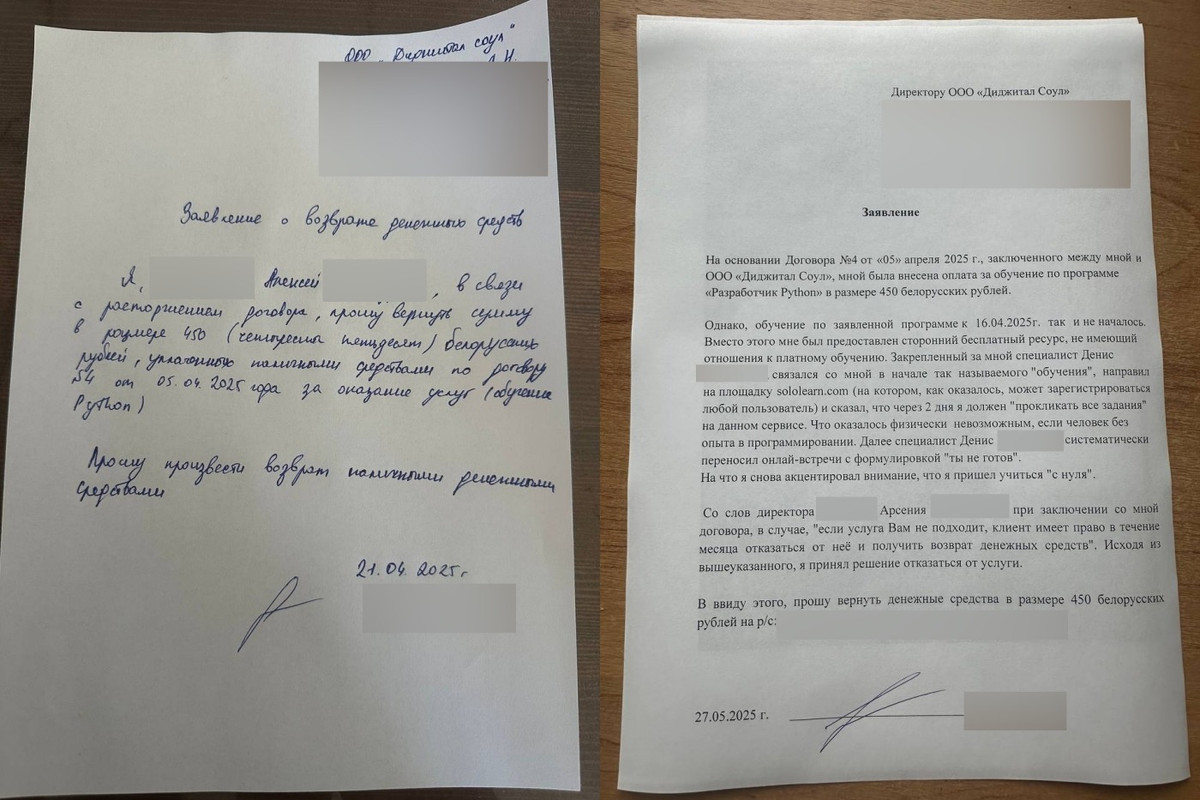 ООО "Диджитал соул"
Заявление о возврате денежных средств
Я, Алексей , в связи
с расторжением договора, прошу вернуть сумму
в размере 450 (четыреста пятьдесят) белорусских
рублей, уплаченную наличными средствами по договору
№4 от 05.04.2025 года за оказание услуг (обучение
Python)
Прошу произвести возврат наличными денежными
средствами
21.04.2025г
Директору ООО «Диджитал Соул»
Заявление
На основании Договора №4 от «05» апреля 2025 г., заключенного между мной и
ООО «Диджитал Соул», мной была внесена оплата за обучение по программе
«Разработчик Python» в размере 450 белорусских рублей.
Однако, обучение по заявленной программе к 16.04.2025г. так и не началось.
Вместо этого мне был предоставлен сторонний бесплатный ресурс, не имеющий
отношения к платному обучению. Закрепленный за мной специалист Денис
связался со мной в начале так называемого "обучения", направил
на площадку sololearn.com (на котором, как оказалось, может зарегистрироваться
любой пользователь) и сказал, что через 2 дня я должен "прокликать все задания"
на данном сервисе. Что оказалось физически невозможным, если человек без
опыта в программировании. Далее специалист Денис систематически
переносил онлай-встречи с формулировкой "ты не готов".
На что я снова акцентировал внимание, что я пришел учиться "с нуля".
Со слов директора Арсения при заключении со мной
договора, в случае, "если услуга Вам не подходит, клиент имеет право в течение
месяца отказаться от неё и получить возврат денежных средств". Исходя из
вышеуказанного, я принял решение отказаться от услуги.
В ввиду этого, прошу вернуть денежные средства в размере 450 белорусских
рублей на р/с:
27.05.2025 г.